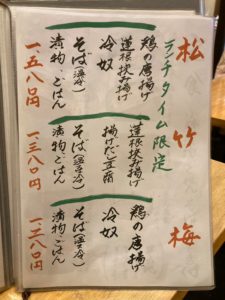 ランチタイム限定
松
鶏の唐揚げ
蓮根挟み揚げ
冷奴
そば(温・冷)
漬物・ごはん
一、五八〇円
竹
蓮根挟み揚げ
揚げだし豆腐
冷奴
そば(温・冷)
漬物・ごはん
一、三八〇円
梅
鶏の唐揚げ
冷奴
そば(温・冷)
漬物・ごはん
一、二八〇円